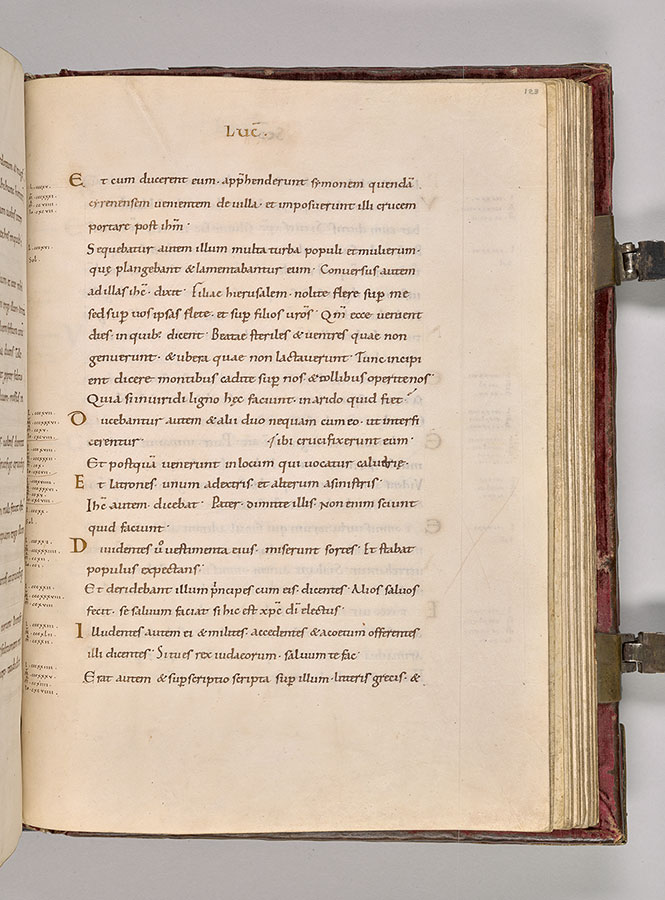 123
Luc̄.
Et cum ducerent eum · app̄henderunt symonem quendā
cyrenensem uenientem de uilla · et imposuerunt illi crucem
portare post ih̄m ·
Sequebatur autem illum multa turba populi et mulierum ·
quę plangebant & lamentabantur eum · Conuersus autem
ad illas ih̄c · dixit · Filiae hierusalem · nolite flere sup̄ me
sed sup̄ uos ipsas flete · et sup̄ filios ur̄os · Qm̄ ecce uenient
dies · in quib; dicent · Beatae steriles & uentres quae non
genuerunt · & ubera quae non lactauerunt · Tunc incipi
ent dicere montibus cadite sup̄ nos · & collibus operite nos ·
Quia si in uiridi ligno hęc faciunt · in arido quid fiet
Ducebantur autem & alii duo nequam cum eo · ut interfi
cerentur · / sibi crucifixerunt eum ·
Et postquā uenerunt in locum qui uocatur caluarie ·
Et latrones · unum a dextris et alterum a sinistris ·
Ih̄c autem · dicebat · Pater · dimitte illis · Non enim sciunt
quid faciunt ·
Diuidentes u̅ uestimenta eius · miserunt sortes · Et stabat
populus expectans ·
Et deridebant illum p̄ncipes cum eis · dicentes · Alios saluos
fecit · se saluum faciat si hic est xp̄c dī electus ·
Illudentes autem ei & milites · accedentes & acoetum offerentes
illi dicentes · Si tu es rex iudaeorum · saluum te fac ·
Erat autem & sup̄scriptio scripta sup̄ illum · litteris grecis · &